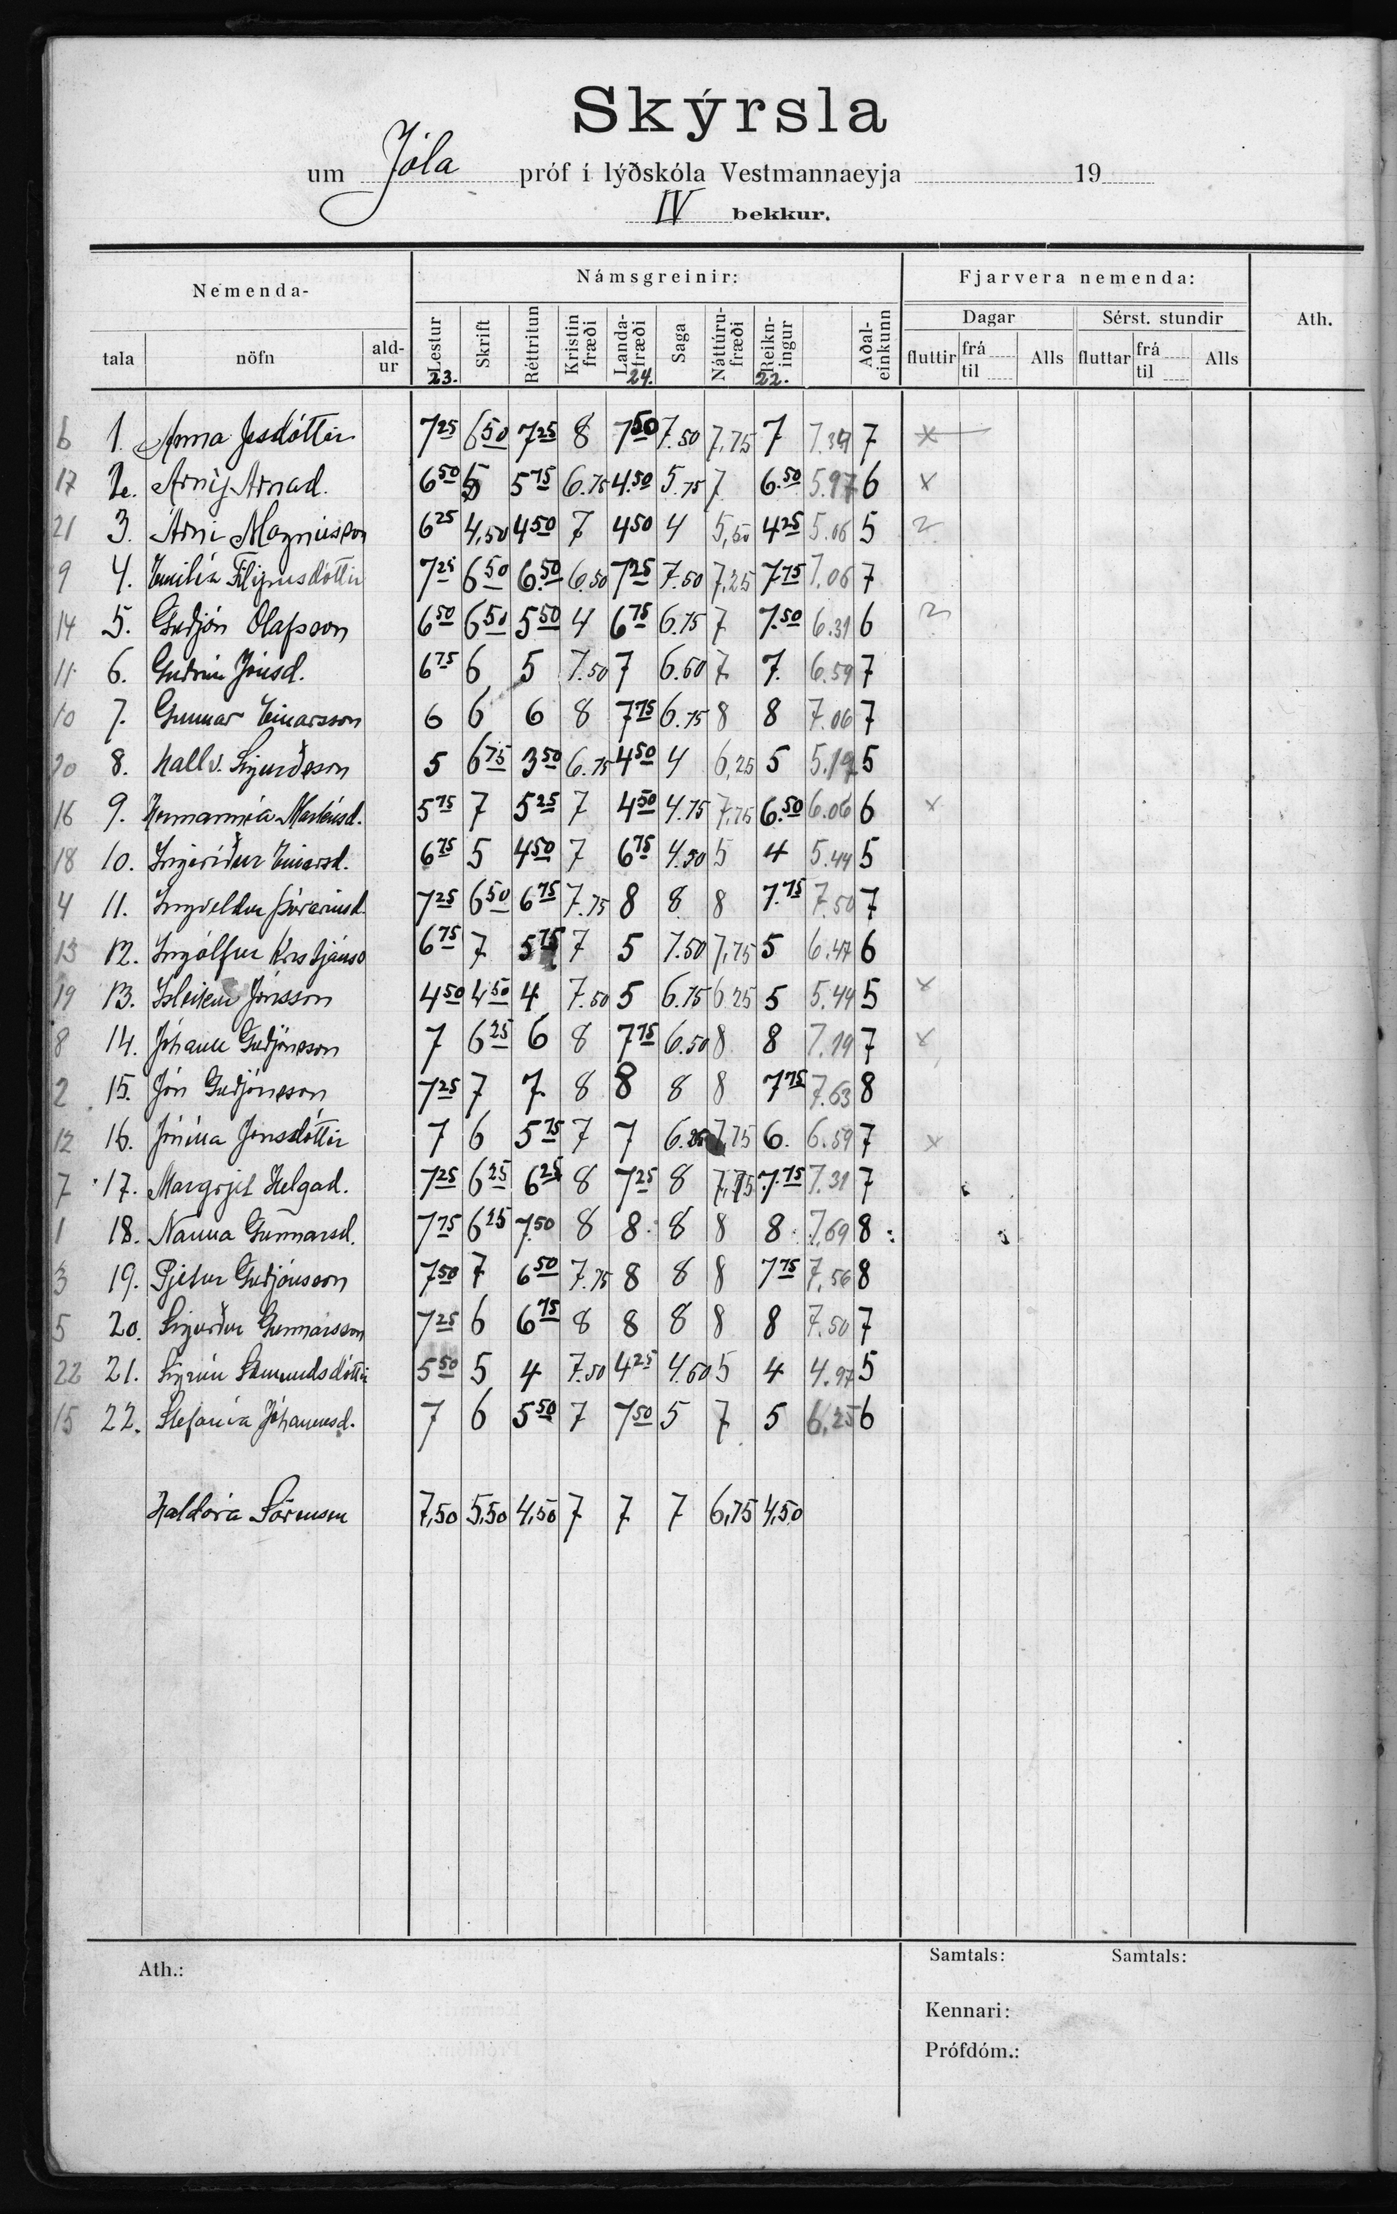 Skýrsla
um Jóla próf í lýðskóla Vestmannaeyja 19
IV bekkur.
Nemenda- Námsgreinir: Fjarvera nemenda: Ath.
Dagar Sérst. stundir
tala nöfn ald-ur Lestur Skrift Réttritun Kristin fræði Landa-fræði Saga Náttúru-fræði Reikn-ingur Aðal-einkunn fluttir frá til Alls fluttar frá til Alls
23. 24. 22.
6 1. Anna Jesdóttir 7 25 6 50 7 25 8 7 50 7.50 7,75 7 7.34 7 x
17 2. Árný Árnad. 6 50 5 5 75 6.75 4.50 5.75 7 6.50 5.97 6 x
21 3. Árni Magnússon 6 25 4,50 4 50 7 4 50 4 5,50 4 25 5.06 5 2
9 4. Emilía Filipusdóttir 7 25 6 50 6.50 6.50 7 25 7.50 7,25 7.75 7.06 7
14 5. Guðjón Olafsson 6 50 6 50 5 50 4 6 75 6.75 7 7.50 6.31 6 2
11 6. Guðrún Jónsd. 6 75 6 5 7.50 7 6.50 7 7. 6.59 7
10 7. Gunnar Einarsson 6 6 6 8 7 75 6.75 8 8 7.06 7
20 8. Hallv. Sigurðsson 5 6 75 3 50 6.75 4 50 4 6,25 5 5.19 5
16 9. Hermannía Markúsd. 5 75 7 5 25 7 4 50 4.75 7,75 6.50 6.06 6 x
18 10. Ingiríður Einarsd. 6 75 5 4 50 7 6 75 4.50 5 4 5.44 5
4 11. Ingveldur Þórarinsd. 7 25 6 50 6 75 7.75 8 8 8 7.75 7.50 7
13 12. Ingólfur Kristjánss 6 75 7 5 75 7 5 7.50 7,75 5 6.47 6
19 13. Ísleikur Jónsson 4 50 4 50 4 7.50 5 6.75 6 25 5 5.44 5 x
8 14. Jóhann Guðjónsson 7 6 25 6 8 7 75 6.50 8 8 7.19 7 x
2 15. Jón Guðjónsson 7 25 7 7. 8 8 8 8 7 75 7.63 8
12 16. Jónína Jónsdóttir 7 6 5 75 7 7 6.25 7,75 6. 6.59 7 x
7 17. Margrjet Helgad. 7 25 6 25 6 25 8 7 25 8 7,75 7.75 7.31 7
1 18. Nanna Gunnarsd. 7 75 6 25 7.50 8 8 8 8 8 7.69 8
3 19. Pjetur Guðjónsson 7 50 7 6 50 7.75 8 8 8 7 75 7.56 8
5 20. Sigurður Gunnarsson 7 25 6 6 75 8 8 8 8 8 7.50 7
22 21. Sigrún Sæmundsdóttir 5 50 5 4 7.50 4 25 4.50 5 4 4.97 5
15 22. Stefanía Jóhannsd. 7 6 5 50 7 7 50 5 7 5 6,25 6
Haldóra Sörensen 7,50 5,50 4,50 7 7 7 6,75 4,50
Ath.:
Samtals: Samtals:
Kennari:
Prófdóm.: